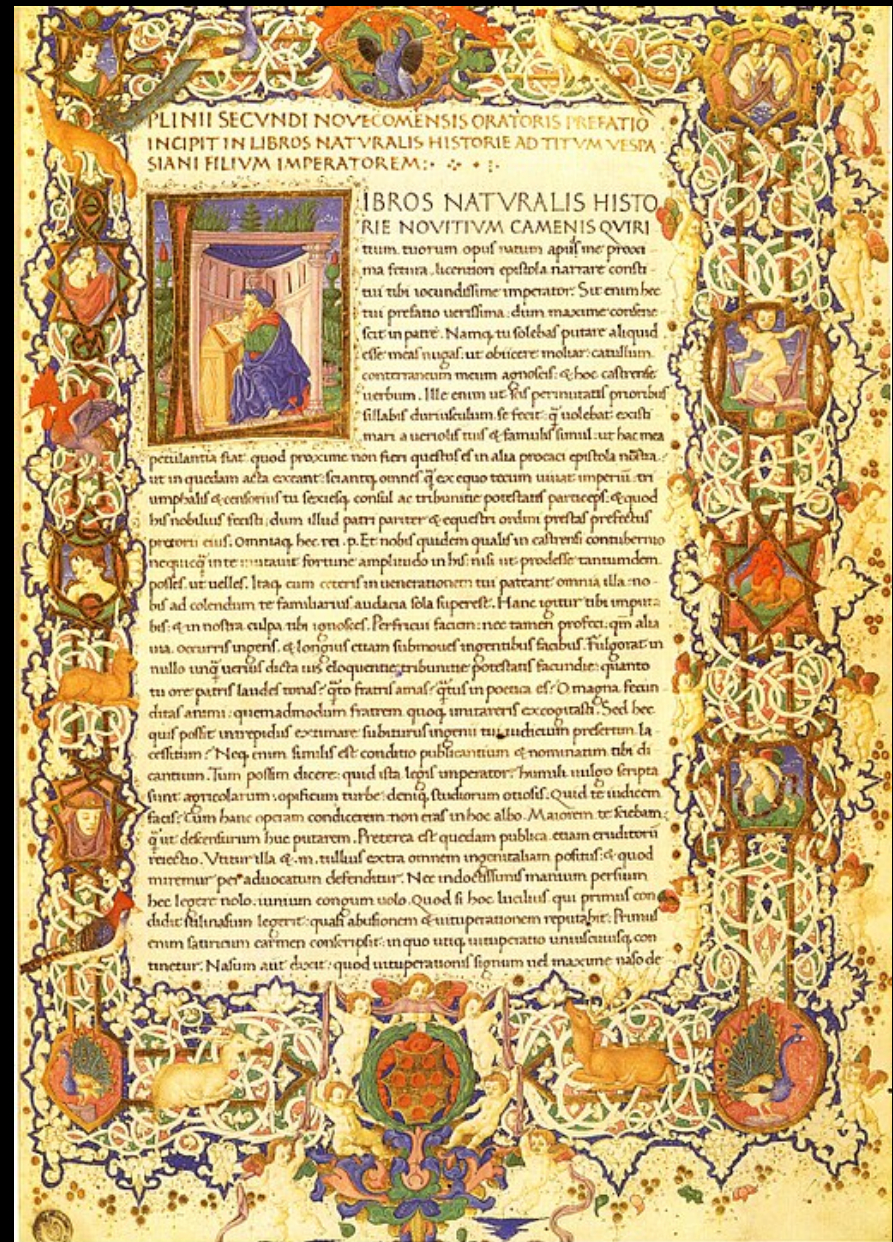 PLINII SECVNDI NOVECOMENSIS ORATORIS PREFATIO
INCIPIT IN LIBROS NATVRALIS HISTORIE AD TITVM VESPA
SIANI FILIVM IMPERATOREM:
LIBROS NATVRALIS HISTO
RIE NOVITIVM CAMENIS QVIRI
tium tuorum opus natum apud me proxi
ma fetura licentiori epistola narrare consti
tui tibi iocundissime imperator. Sit enim hec
tui prefatio uerissima: dum maxime consene
scit in patre. Namq; tu solebas putare aliquid
esse meas nugas: ut obiicere moliar catullum
conterraneum meum agnoscis: & hoc castrense
uerbum. Ille enim ut scis permutatis prioribus
sillabis duriusculum se fecit: q̃ uolebat existi
mari a ueriolis tuis & famulis simul: ut hac mea
petulantia fiat quod proxime non fieri questus es in alia procaci epistola nostra:
ut in quedam acta exeant: sciantq; omnes q̃ ex equo tecum uiuat imperiũ: tri
umphalis & censorius tu sexiesq; consul ac tribunitie potestatis particeps: & quod
his nobilius fecisti: dum illud patri pariter & equestri ordini prestas prefectus
pretorii eius. Omniaq; hec rei .p. Et nobis quidem qualis in castrensi contubernio
nequicq̃ in te mutauit fortune amplitudo in his: nisi ut prodesse tantumdem
posses ut uelles. Itaq; cum ceteris in uenerationem tui pateant omnia illa: no
bis ad colendum te familiarius audacia sola superest. Hanc igitur tibi imputa
bis: & in nostra culpa tibi ignosces. Perfricui faciem: nec tamen profeci: qm̃ alia
uia occurris ingens: & longius etiam submoues ingentibus facibus. Fulgorat in
nullo unq̃ uerius dicta uis eloquentie: tribunitie potestatis facundie: quanto
tu ore patris laudes tonas? q̃to fratris amas? q̃tus in poetica es? O magna fecun
ditas animi: quemadmodum fratrem quoq; imitareris excogitasti. Sed hec
quis possit intrepidus extimare subiturus ingenii tui iudicium presertim la
cessitum? Neq; enim similis est conditio publicantium & nominatim tibi di
cantium. Tum possim dicere: quid ista legis imperator? humili uulgo scripta
sunt: agricolarum: opificum turbe: deniq; studiorum otiosis. Quid te iudicem
facis? Cum hanc operam condicerem: non eras in hoc albo. Maiorem te sciebam:
q̃ ut descensurum huc putarem. Preterea est quedam publica etiam eruditorũ
reiectio. Vtitur illa & .m. tullius extra omnem ingenii aliam positus: & quod
miremur per aduocatum defenditur. Nec indoctissimis manium persium
hec legere nolo: iunium congum uolo. Quod si hoc lucilius qui primus con
didit stili nasum legerit: quasi abusionem & uituperationem reputabit. Primus
enim satiricum carmen conscripsit: in quo utiq; uituperatio uniuscuiusq; con
tinetur. Nasum aut dixit: quod uituperationis signum uel maxime naso de